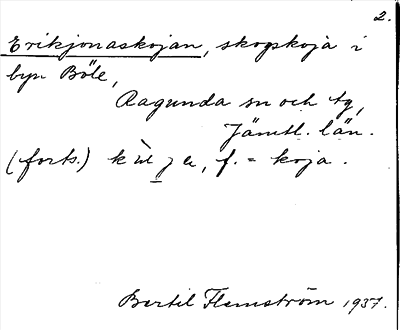 2.
Erikjonaskojan, skogskoja i
byn Böle,
Ragunda sn och tg,
Jämtl. län.
(forts.) , f. = koja.
Bertil Flemström 1937.